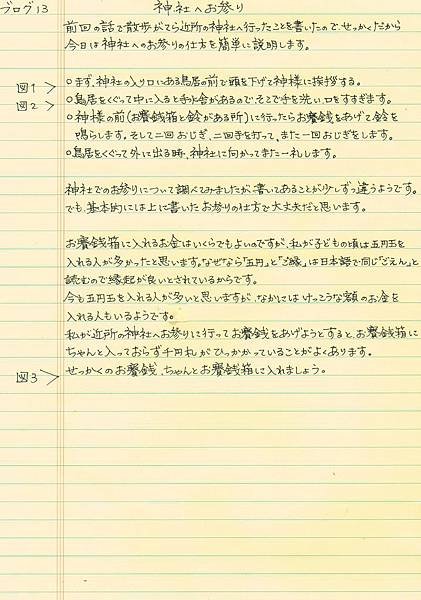 ブログ13 神社へお参り
前回の話で散歩がてら近所の神社へ行ったことを書いたので、せっかくだから
今日は神社へのお参りの仕方を簡単に説明します。
図1> ○まず、神社の入り口にある鳥居の前で頭を下げて神様に挨拶する。
図2> ○鳥居をくぐって中に入ると手水舎があるので、そこで手を洗い口をすすぎます。
○神様の前(お賽銭箱と鈴がある所)に行ったらお賽銭をあげて鈴を
鳴らします。そして二回おじぎ、二回手を打って、また一回おじぎをします。
○鳥居をくぐって外に出る時、神社に向かってまた一礼します。
神社でのお参りについて調べてみましたが、書いてあることが少しずつ違うようです。
でも、基本的には上に書いたお参りの仕方で大丈夫だと思います。
お賽銭箱に入れるお金はいくらでもよいのですが、私が子どもの頃は五円玉を
入れる人が多かったと思います。なぜなら「五円」と「ご縁」は日本語で同じ「ごえん」と
読むので縁起が良いとされているからです。
今も五円玉を入れる人が多いと思いますが、なかにはけっこうな額のお金を
入れる人もいるようです。
私が近所の神社へお参りに行ってお賽銭をあげようとすると、お賽銭箱に
ちゃんと入っておらず千円札がひっかかっていることがよくあります。
図3> せっかくのお賽銭、ちゃんとお賽銭箱に入れましょう。